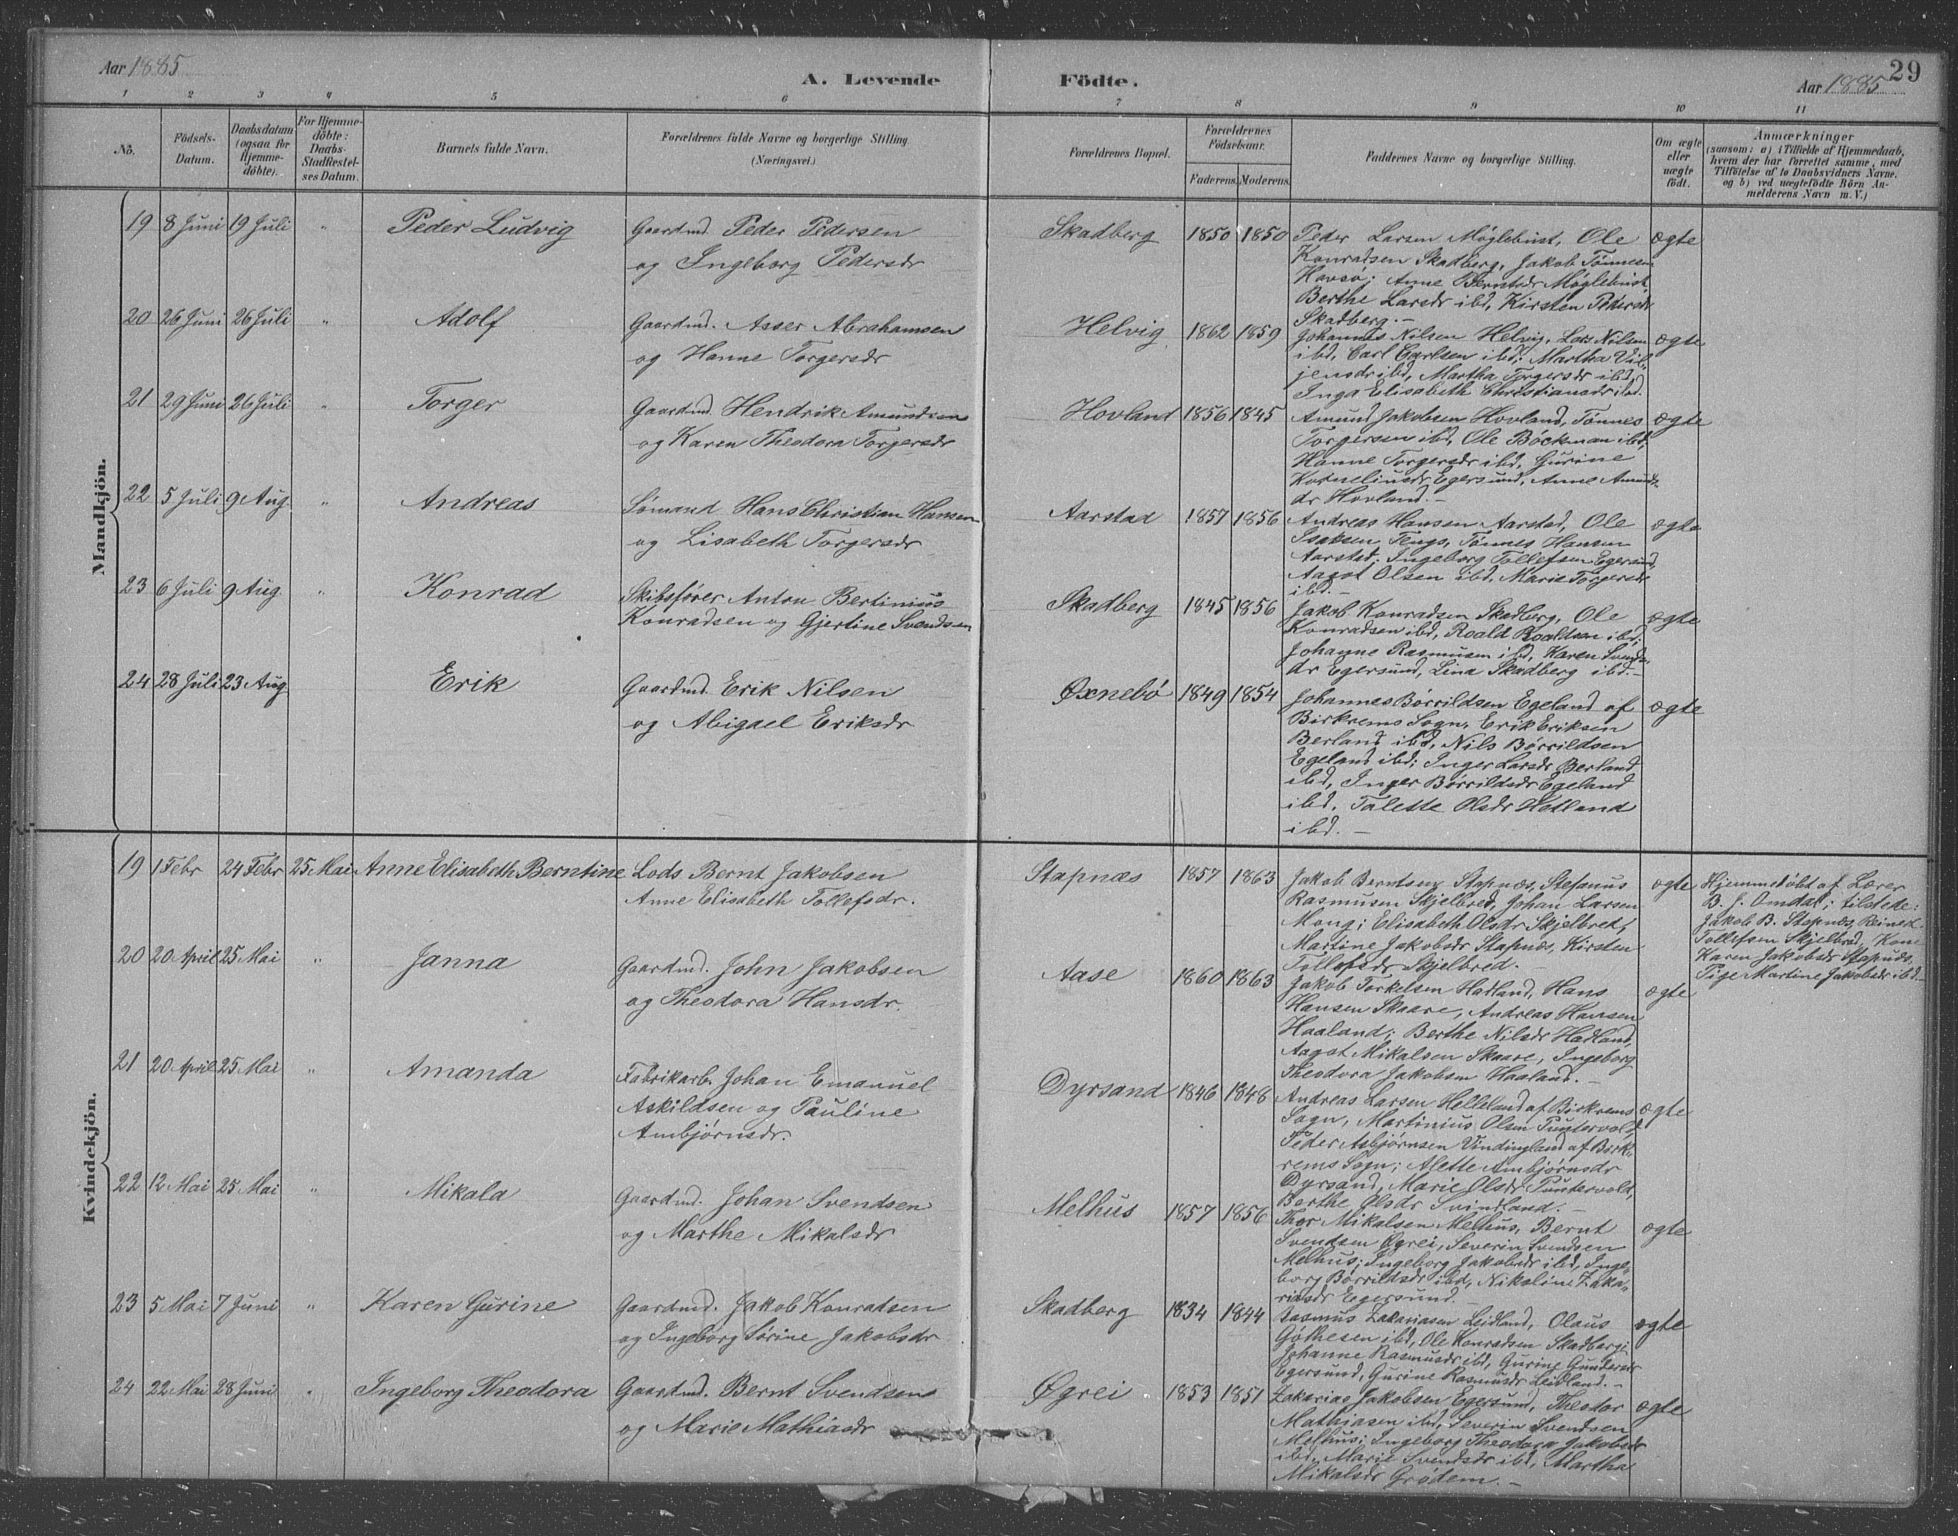 Aar 1885
A. Levende Födte.
Aar 1885
29
1 2 3 4 5 6 7 8 9 10 11
No.
Födsels-Datum.
Daabsdatum (ogsaa for Hjemme-döbte).
For Hjemme-döbte: Daabs-Stadfestel-ses Datum.
Barnets fulde Navn.
Forældrenes fulde Navne og borgerlige Stilling.
(Næringsvei.)
Forældrenes Bopæl.
Forældrenes Födselsaar.
Faderens. Moderens.
Faddernes Navne og borgerlige Stilling.
Om ægte eller uægte födt.
Anmærkninger
(saasom: a) i Tilfælde af Hjemmedaab,
hvem der har forrettet samme, med
Tilföielse af to Daabsvidners Navne,
og b) ved uægtefödte Börn An-
melderens Navn m. V.)
Mandkjön.
19 8 Juni 19 Juli " Peder Ludvig Gaardmd. Peder Pedersen
og Ingeborg Pedersdr
Skadberg 1850 1850 Peder Larsen Møglebust, Ole ægte
Konradsen Skadberg, Jakob Tønnesen
Havsø; Anne Berntsdr Møglebust
Berthe Larsdr ibd, Kirsten Pedersdr
Skadberg. —
20 26 Juni 26 Juli " Adolf Gaardmd. Asser Abrahamsen
og Hanne Torgersdr
Helvig 1862 1859 Johannes Nilsen Helvig, Lars Nilsen ægte
ibd, Carl Carlsen ibd; Martha Vil-
jensdr ibd, Martha Torgersdr ibd,
Inga Elisabeth Christiansdr ibd.
21 29 Juni 26 Juli " Torger Gaardmd. Hendrik Amundsen
og Karen Theodora Torgersdr
Hovland 1856 1845 Amund Jakobsen Hovland, Tønnes ægte
Torgersen ibd, Ole Böckman ibd,
Hanne Torgersdr ibd, Gurine
Korneliusdr Egersund, Anne Amunds-
dr Hovland. —
22 5 Juli 9 Aug. " Andreas Sømand Hans Christian Hansen
og Lisabeth Torgersdr
Aarstad 1857 1856 Andreas Hansen Aarstad, Ole ægte
Isaksen Tengs, Tønnes Hansen
Aarstad; Ingeborg Tollefsen Egersund,
Aagot Olsen ibd, Marie Torgersdr
ibd. —
23 6 Juli 9 Aug. " Konrad Skibsfører Anton Bertinius
Konradsen og Gjertine Svendsen
Skadberg 1845 1856 Jakob Konradsen Skadberg, Ole ægte
Konradsen ibd, Roald Roaldsen ibd;
Johanne Rasmusen ibd, Karen Svends-
dr Egersund, Lina Skadberg ibd. —
24 28 Juli 23 Aug Erik Gaardmd. Erik Nilsen
og Abigael Eriksdr
Øxnebö 1849 1854 Johannes Børrildsen Egeland af ægte
Birkrems Sogn, Erik Eriksen
Berland ibd, Nils Børrildsen
Egeland ibd; Inger Larsdr Berland
ibd, Inger Børrildsdr Egeland
ibd, Talette Olsdr Hotland
ibd. —
Kvindekjön.
19 1 Febr 24 Febr 25 Mai Anne Elisabeth Berntine Lods Bernt Jakobsen
Anne Elisabeth Tollefsdr.
Stapnæs 1857 1863 Jakob Berntsen Stapnæs, Stefanus ægte
Rasmusen Skjelbred, Johan Larsen
Mong; Elisabeth Olsdr Skjelbred,
Martine Jakobsdr Stapnæs, Kirsten
Tollefsdr Skjelbred. —
Hjemmedøbt af Lærer
B. J. Omdal; tilstede:
Jakob B. Stapnæs, Reinert
Tollefsen Skjelbred, Kone
Karen Jakobsdr Stapnæs,
Pige Martine Jakobsdr ibd. —
20 20 April 25 Mai " Janna Gaardmd. John Jakobsen
og Theodora Hansdr.
Aase 1860 1863 Jakob Torkelsen Hadland, Hans ægte
Hansen Skaare, Andreas Hansen
Haaland; Berthe Nilsdr Hadland,
Aagot Mikalsen Skaare, Ingeborg
Theodora Jakobsen Haaland. —
21 20 April 25 Mai " Amanda Fabrikarb. Johan Emanuel
Askildsen og Pauline
Ambjørnsdr.
Dyrsand 1846 1848 Andreas Larsen Helleland af Birkrems ægte
Sogn, Martinius Olsen Puntervold,
Peder Asbjørnsen Vindingland af Birk-
rems Sogn; Alette Ambjørnsdr
Dyrsand, Marie Olsdr Puntervold,
Berthe Olsdr Svindland. —
22 12 Mai 25 Mai " Mikala Gaardmd. Johan Svendsen
og Marthe Mikalsdr
Melhus 1857 1856 Thor Mikalsen Melhus, Bernt ægte
Svendsen Øgrei, Severin Svendsen
Melhus; Ingeborg Jakobsdr ibd, Inge-
borg Børrildsdr ibd, Nikoline Zaka-
riasdr Egersund. —
23 5 Mai 7 Juni " Karen Gurine Gaardmd. Jakob Konradsen
og Ingeborg Sørine Jakobsdr
Skadberg 1834 1844 Rasmus Zakariasen Leidland, Olaus ægte
Gøthesen ibd, Ole Konradsen Skadberg;
Johanne Rasmusdr ibd, Gurine Gundersdr
Egersund, Gurine Rasmusdr Leidland. —
24 22 Mai 28 Juni " Ingeborg Theodora Gaardmd. Bernt Svendsen
og Marie Mathiasdr
Øgrei 1853 1851 Zakarias Jakobsen Egersund, Theodor ægte
Mathiasen ibd, Severin Svendsen
Melhus; Ingeborg Theodora Jakobsdr
ibd, Marie Svendsdr ibd, Martha
Mikalsdr Grødem. —